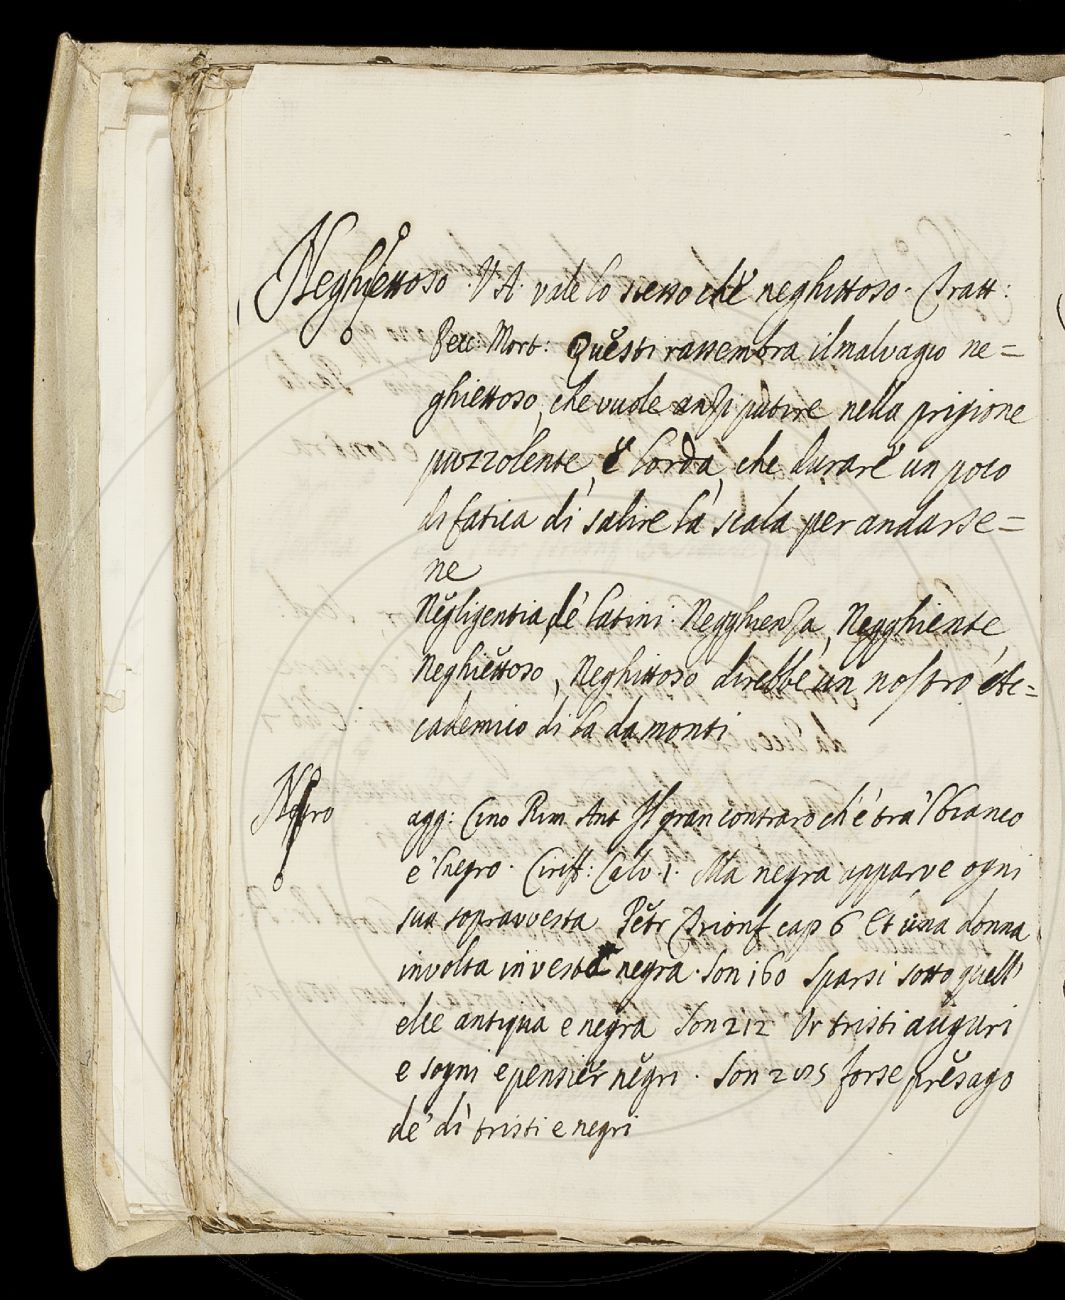 Neghiettoso. V A. vale lo stesso chè neghittoso. Tratt:
Pecc: Mort: Questi rassembra il malvagio ne=
ghiettoso, che vuole anzi patire nella prigione
puzzolente, è lorda, che durare un poco
di fatica di salire la scala per andarse=
ne
Negligentia de' latini. Negghienza, Negghiente,
Neghiettoso, Neghittoso direbbe un nostro Ac=
cademico di la da monti
Negro agg: Cino Rim Ant Il gran contraro ch'é tra 'l bianco
e 'l negro. Ciriff: Calv. 1. Ma negra apparve ogni
sua sopravvesta Petr Trionf cap 6 Et una donna
involta in vesta negra. Son 160 Sparsi sotto quell'
elce antiqua e negra Son 212 Or tristi auguri
e sogni e pensier negri. Son forse presago
de' dì tristi e negri